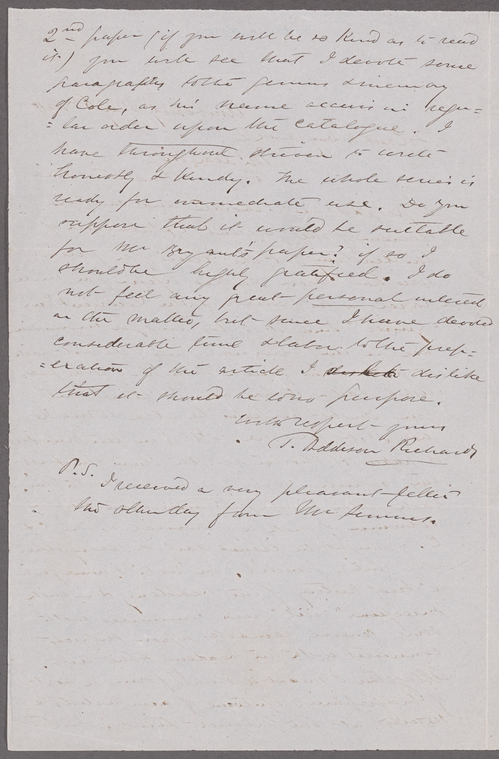 2nd paper (if you will be so kind as to read
it) you will see that I devote some
paragraphs to the genius & memory
of Cole, as his name occurs in regu-
-lar order upon the catalogue. I
have throughout striven to write
honestly & kindly. The whole series is
ready for immediate use. Do you
suppose that it would be suitable
for Mr Bryant's paper? if so I
should be highly gratified. I do
not feel any great personal interest
in the matter, but since I have devoted
considerable time & labor to the prep-
-eration of the article I dislike
that it should be to no purpose.
With respect yours
T. Addison Richards
P.S. I received a very pleasant letter
the other day from Mr Simms.